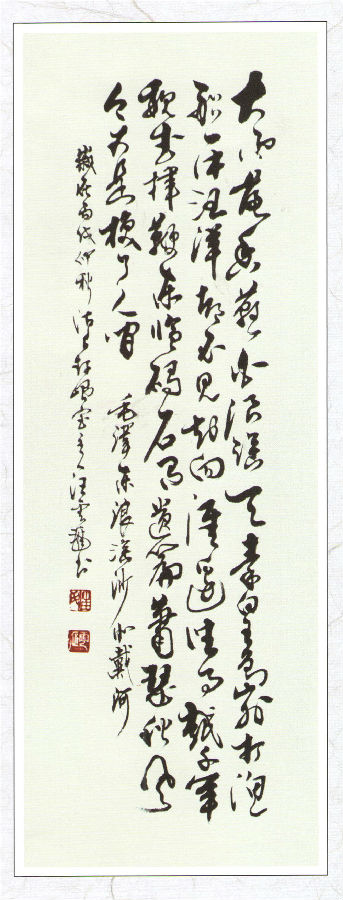 大雨落幽燕白浪滔天秦皇島外打渔
船一片汪洋都不见知向谁边往事越千年
魏武挥鞭东临碣石有遗篇萧瑟秋风
今又是换了人间 毛泽东浪淘沙北戴河